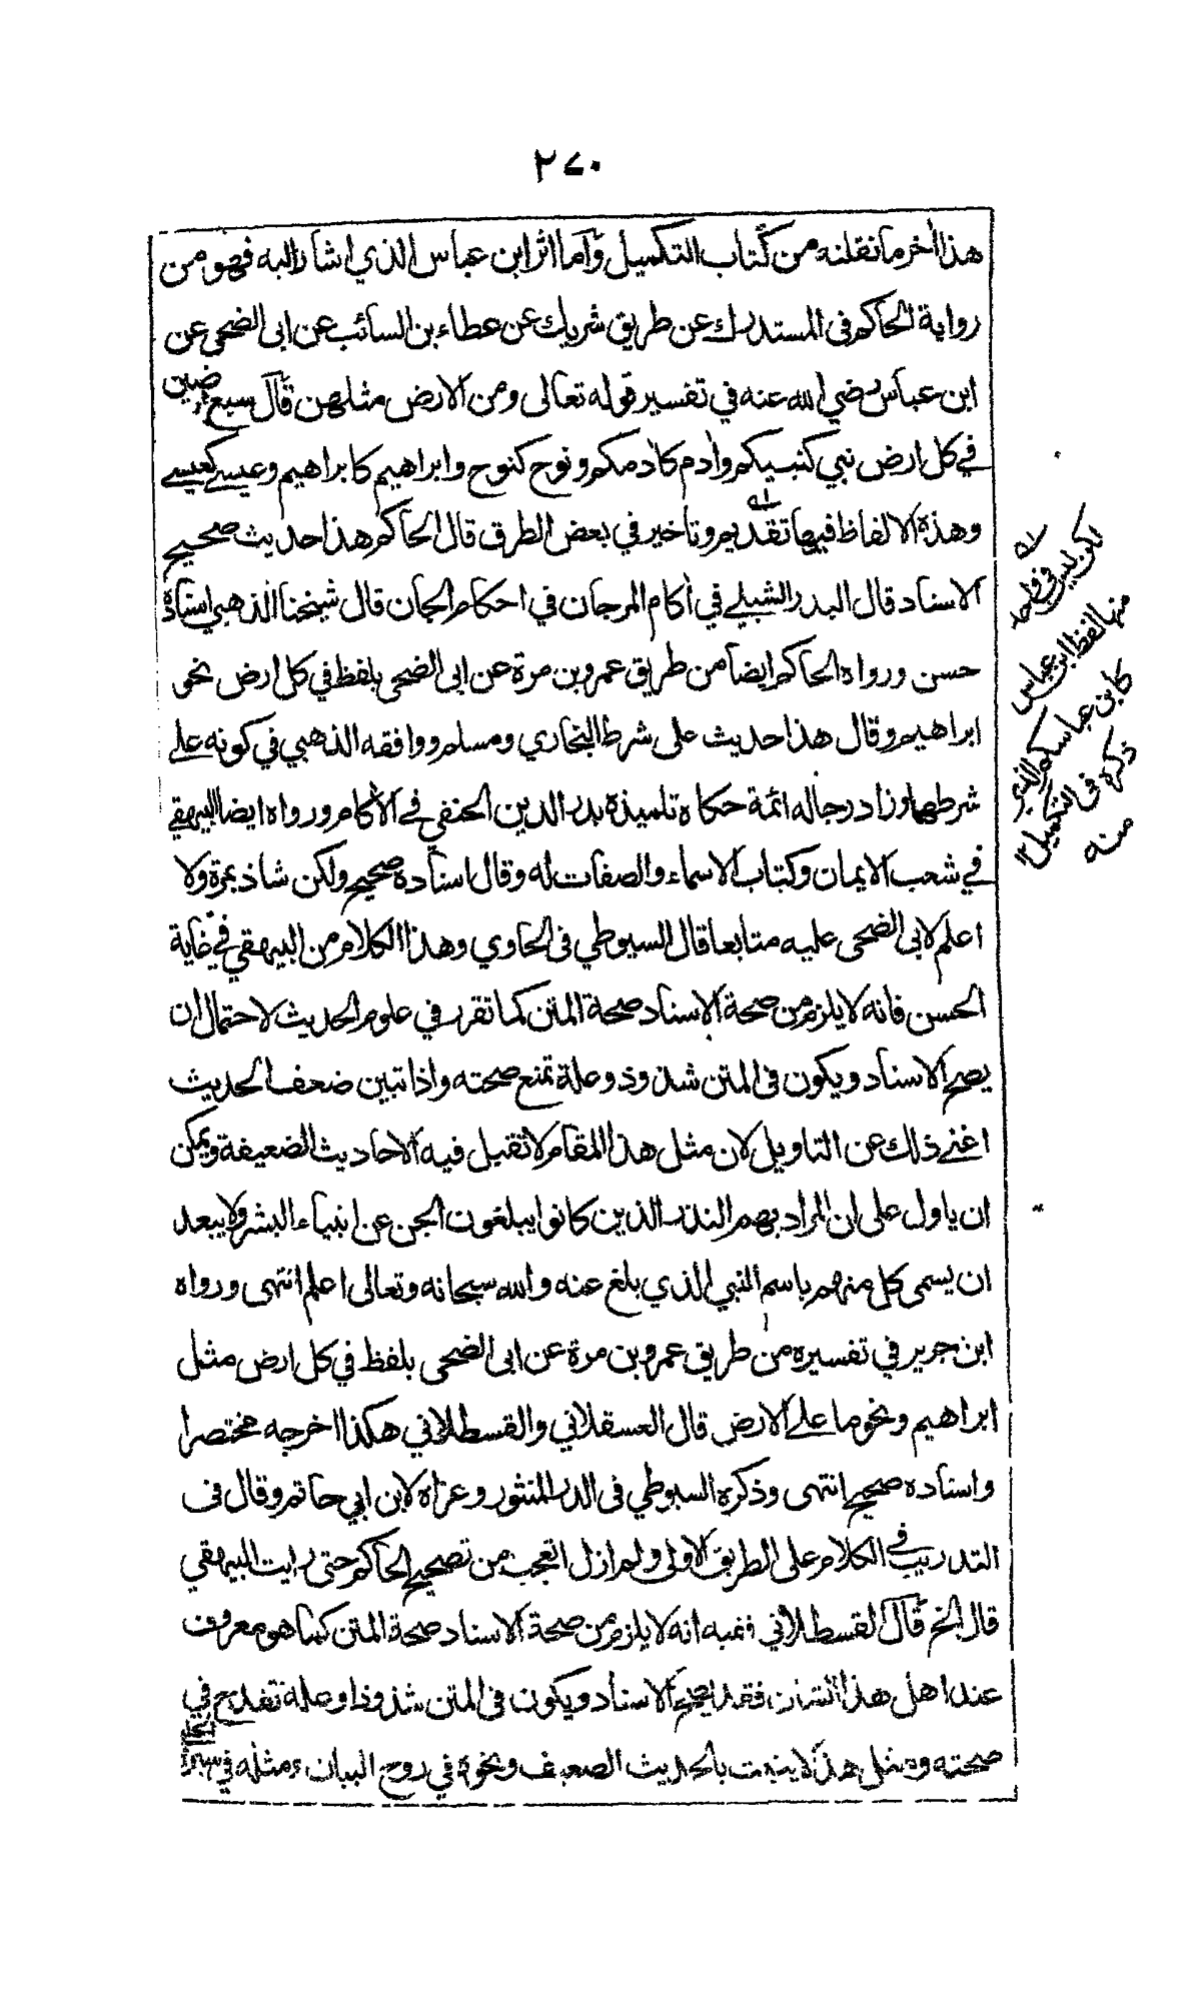 ٢٧٠
هذا اخر ما نقلنه من كتاب التكميل وأما اثر ابن عباس الذي اشار اليه فهو من
رواية الحاكم فى المستدرك عن طريق شريك عن عطاء بن السائب عن ابى الضحى عن
ابن عباس رضي الله عنه في تفسير قوله تعالى ومن الارض مثلهن قال سبع ارضين
في كل ارض نبي كنبيكم وادم كادمكم ونوح كنوح وابراهيم كابراهيم وعيسے كعيسے
وهذه الالفاظ فيها تقديم وتاخير في بعض الطرق قال الحاكم هذا حديث صحيح
الاسناد قال البدر الشبلے في اكام المرجان في احكام الجان قال شيخنا الذهبي اسناده
حسن ورواه الحاكم ايضا من طريق عمرو بن مرة عن ابى الضحى بلفظ في كل ارض نحو
ابراهيم وقال هذا حديث على شرط البخاري ومسلم ووافقه الذهبي في كونه علے
شرطهما وزاد رجاله ائمة حكاه تلميذه بدر الدين الحنفي في الاكام ورواه ايضا البيهقي
في شعب الايمان وكتاب الاسماء والصفات له وقال اسناده صحيح ولكن شاذ بمرة ولا
اعلم لابى الضحى عليه متابعا قال السيوطي فى الحاوي وهذا الكلام من البيهقي في غاية
الحسن فانه لا يلزم من صحة الاسناد صحة المتن كما تقرر في علوم الحديث لاحتمال ان
يصح الاسناد ويكون فى المتن شذوذ وعلة تمنع صحته واذا تبين ضعف الحديث
اغنے ذلك عن التاويل لان مثل هذا المقام لا تقبل فيه الاحاديث الضعيفة ويمكن
ان ياول على ان المراد بهم النذر الذين كانوا يبلغون الجن عن انبياء البشر ولا يبعد
ان يسمى كل منهم باسم النبي الذي بلغ عنه والله سبحانه وتعالى اعلم انتهى ورواه
ابن جرير في تفسيره من طريق عمرو بن مرة عن ابى الضحى بلفظ في كل ارض مثل
ابراهيم ونحو ما علے الارض قال العسقلاني والقسطلاني هكذا اخرجه مختصرا
واسناده صحيح انتهى وذكره السيوطي فى الدر المنثور وعزاه لابن ابي حاتم وقال فى
التدريب في الكلام على الطريق الاولى ولم ازل اتعجب من تصحيح الحاكم حتى رايت البيهقي
قال الخ قال القسطلاني ففيه انه لا يلزم من صحة الاسناد صحة المتن كما هو معروف
عند اهل هذا الشان فقد يصح الاسناد ويكون فى المتن شذوذا وعلة تقدح في
صحته ومثل هذا لا يثبت بالحديث الضعيف ونحوه في روح البيان ومثله في
له لكن ليس في واحد
منها لفظ ابن عباس
كابن عباسكم الذي
ذكره فى التكميل ١٢
منه